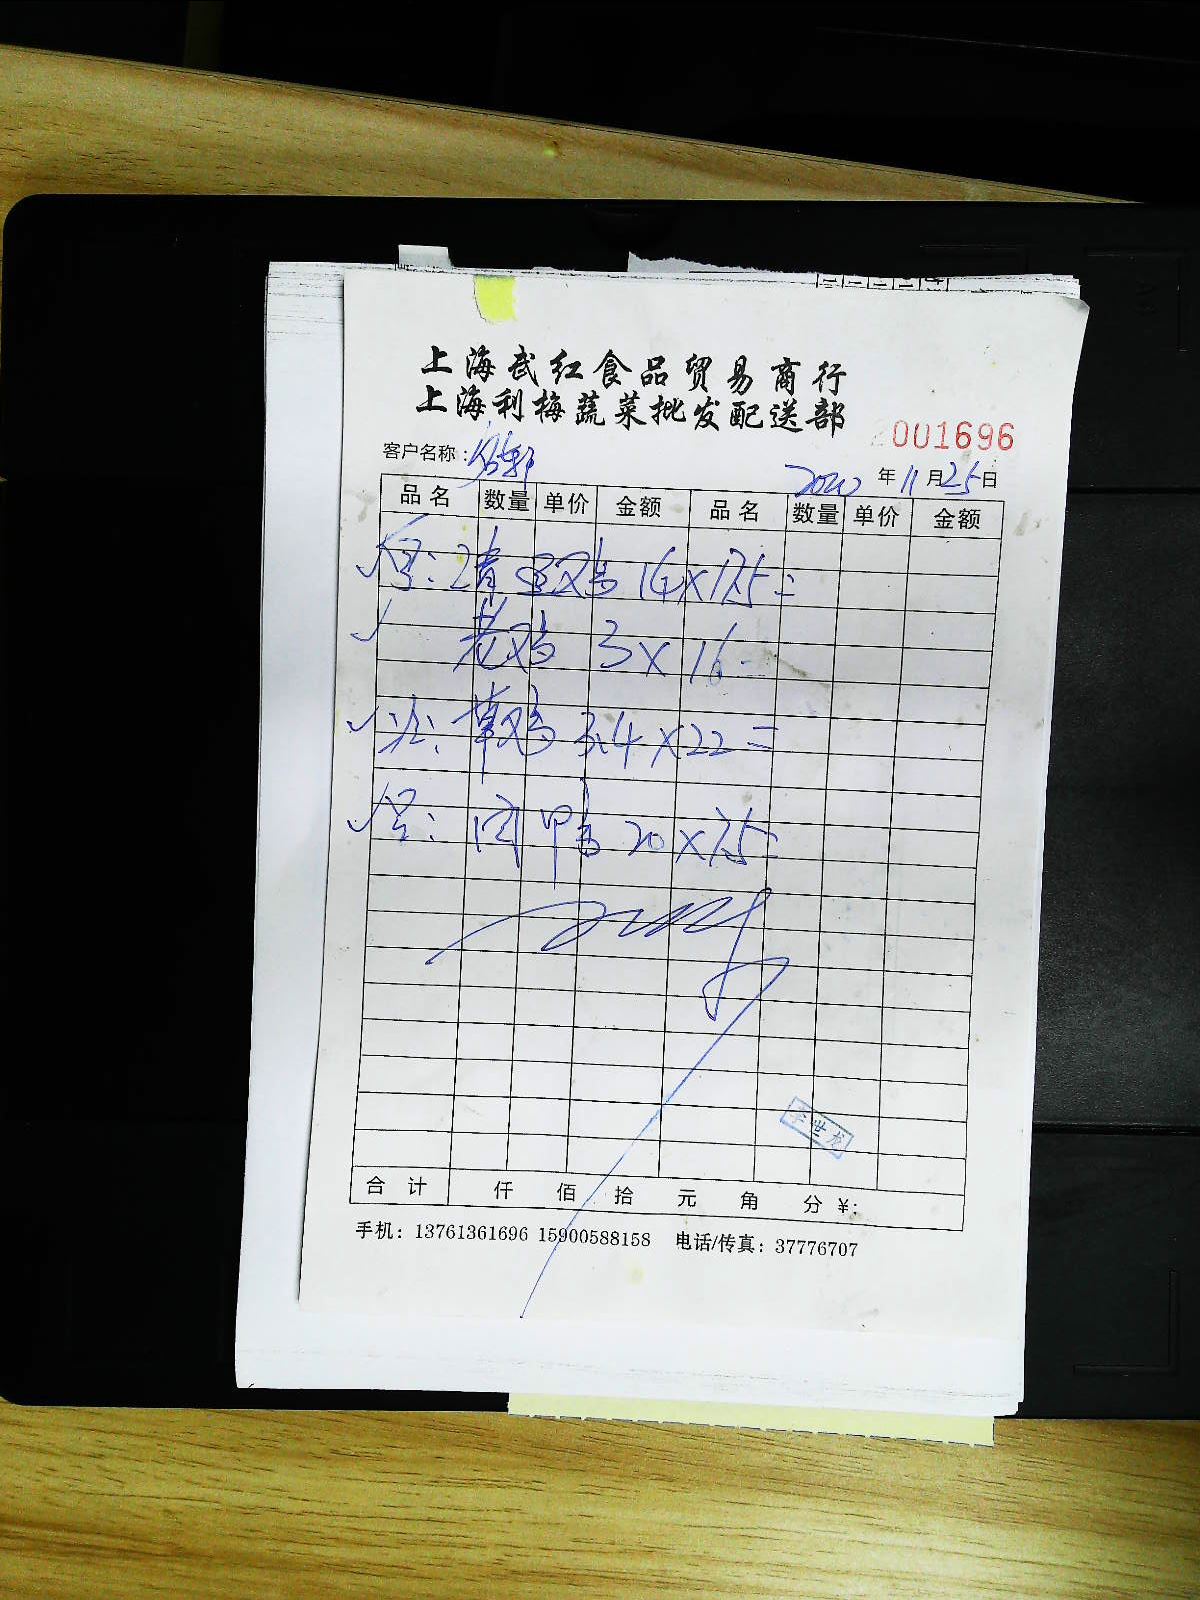 上海武红食品贸易商行
上海利梅蔬菜批发配送部
001696
客户名称:
2020 年 11 月 25 日
品名 数量 单价 金额 品名 数量 单价 金额
14×17.5=
老鸡 3×16=
草鸡 3.4×22=
鸭 20×7.5=
李世龙
合计 仟 佰 拾 元 角 分 ¥:
手机: 13761361696 15900588158 电话/传真: 37776707